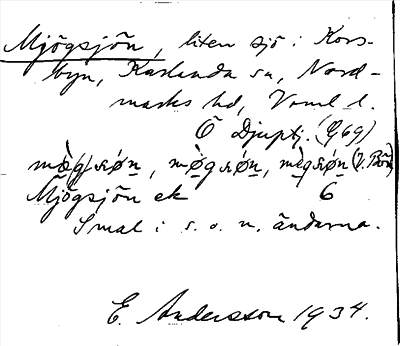 Mjögsjön, liten sjö i Kors-
byn, Karlanda sn, Nord-
marks hd, Vrml l.
Ö Djuptj. (Q69)
mø̀gsø̀n, mø̀gsø̀n, mègsø̀n (V. Bön)
Mjögsjön ek 6
Smal i s. o. n. ändarna.
E. Andersson 1934.